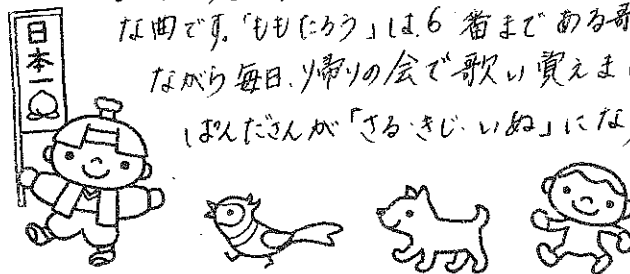 な曲です。「ももたろう」は、6番まである歌
ながら毎日、帰りの会で歌い覚えま
ぱんださんが「さる・きじ・いぬ」にな
日本一